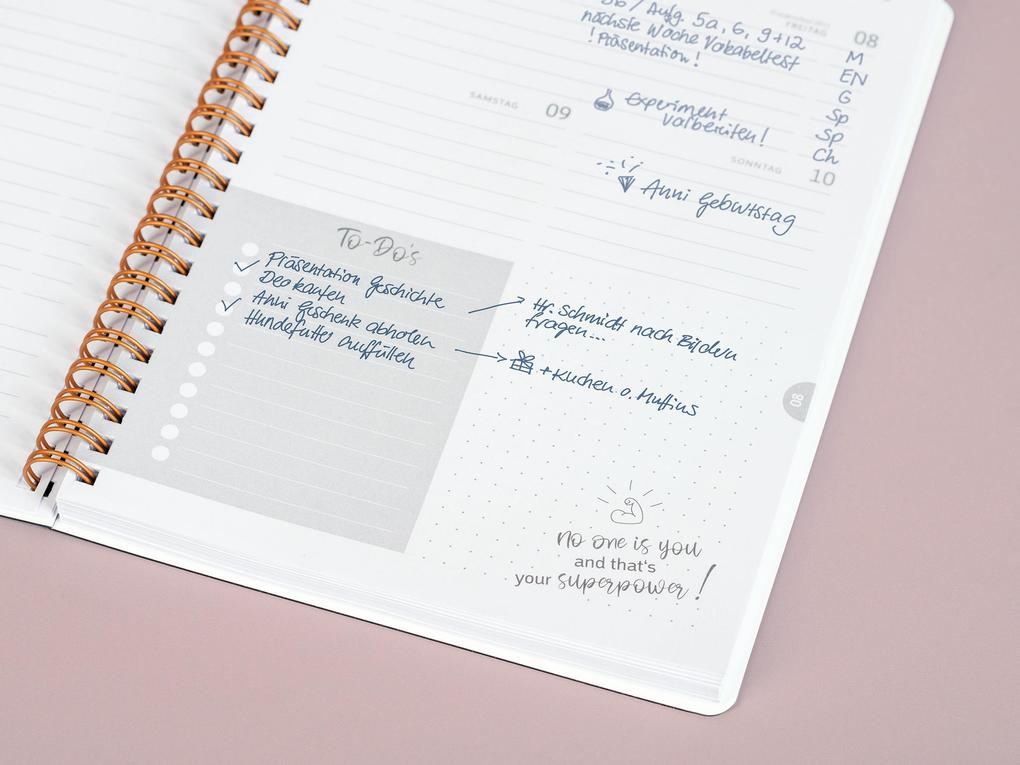 FREITAG 08
Aufg. 5a, 6, 9+12
nächste Woche Vokabeltest
! Präsentation !
M
EN
G
Sp
Sp
Ch
Experiment
vorbereiten!
SAMSTAG 09
SONNTAG 10
Anni Geburtstag
To-Do's
Präsentation Geschichte
Deo kaufen
Anni Geschenk abholen
Hundefutter auffüllen
Hr. Schmidt nach Bildern
fragen...
+Kuchen o. Muffins
08
no one is you
and that's
your superpower!